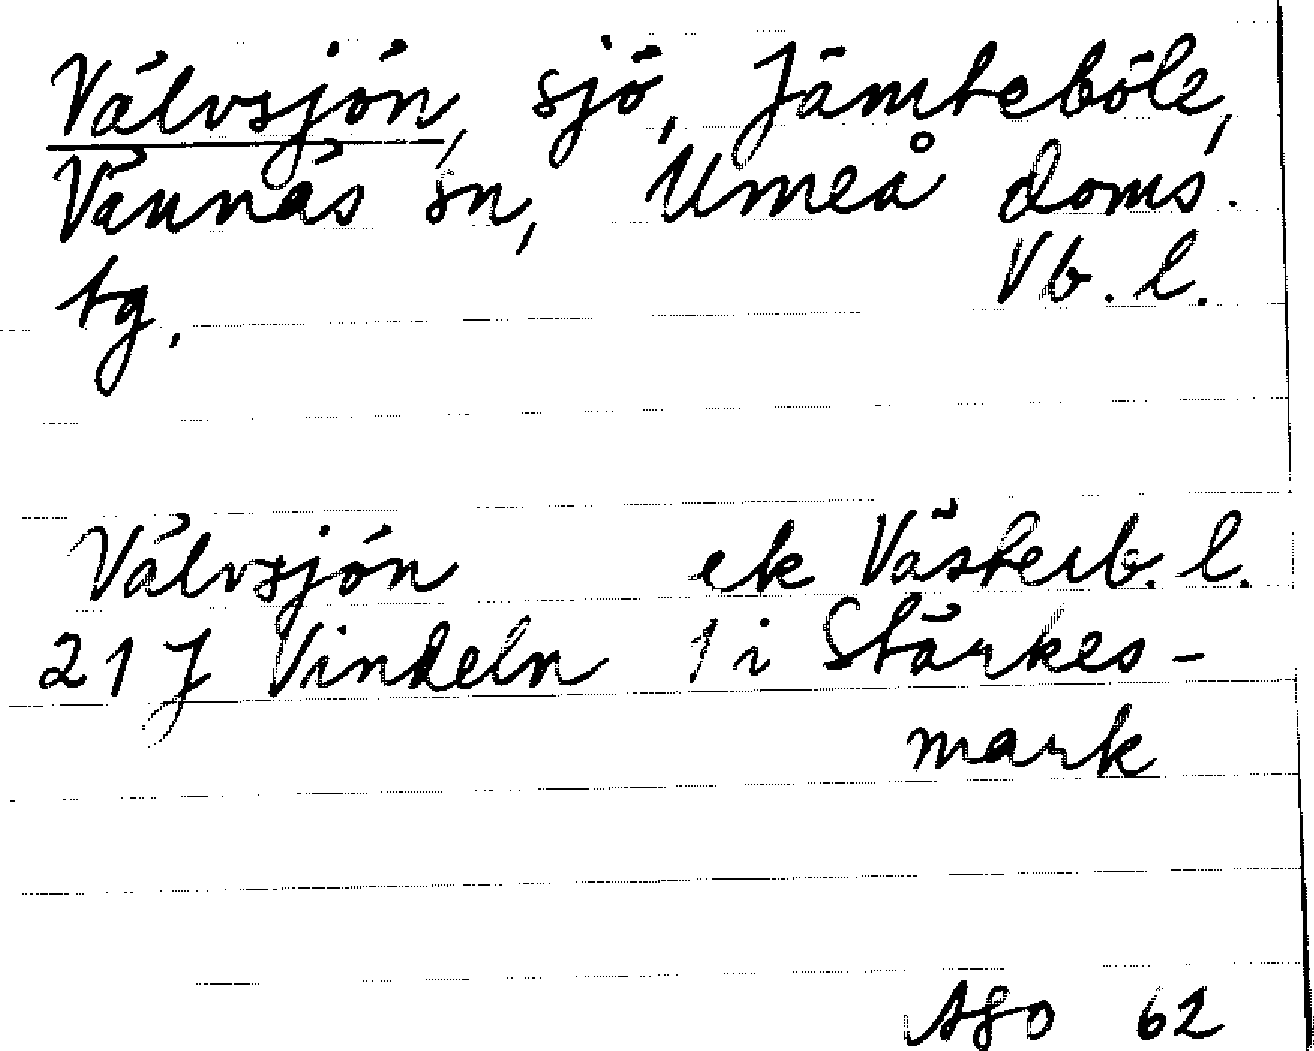 Välvsjön, sjö, Jämteböle,
Vännäs sn, Umeå doms.
tg. Vb. l.
Välvsjön ek Västerb. l.
21 J Vindeln 1 i Stärkes-
mark
AGO 62